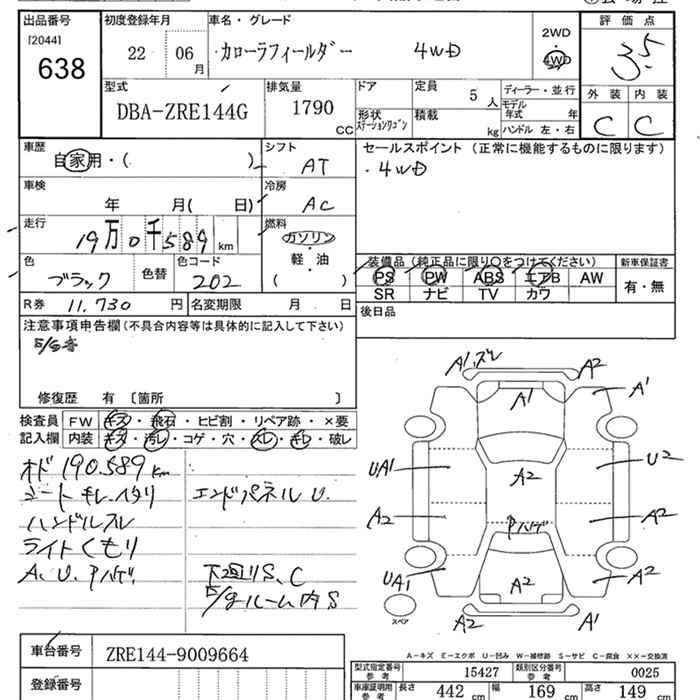 出品番号 初度登録年月 車名・グレード 評価点
[2044]
638
22 06月 カローラフィールダー 4WD 2WD 4WD 3.5
型式 排気量 ドア 定員 5人 ディーラー・並行 外装 内装
DBA-ZRE144G 1790 CC 形状 ステーションワゴン 積載 kg モデル年式 年 C C
ハンドル 左・右
車歴 自家用・( ) シフト AT セールスポイント (正常に機能するものに限ります)
・4WD
車検 年 月( 日) 冷房 AC
走行 19万0千589km 燃料 ガソリン・軽油・( )
色 ブラック 色替 色コード 202
装備品 (純正品に限り○をつけてください) 新車保証書
PS PW ABS エアB AW 有・無
SR ナビ TV カワ
R券 11,730円 名変期限 月 日 後日品
注意事項申告欄(不具合内容等は具体的に記入して下さい)
修復歴 有 〔箇所 〕
検査員 FW キズ・飛石・ヒビ割・リペア跡・×要
記入欄 内装 キズ・汚レ・コゲ・穴・スレ・キレ・破レ
オド 190.589km
シート キレ、ヘタリ エンドパネル U.
ハンドルスレ
ライトくもり
A、U、Pハゲ 下回りS、C
ルーム内S
A1,ズレ A2
A1 A1
UA1 A2 U2
A2 Pハゲ A2
UA1 A2 A2
スペア A2 A1
A-キズ E-エクボ U-凹み W-補修跡 S-サビ C-腐食 ××-交換済
車台番号 ZRE144-9009664
型式指定番号 参考 15427 類別区分番号 参考 0025
登録番号
車庫証明用 参考 長さ 442cm 幅 169cm 高さ 149cm